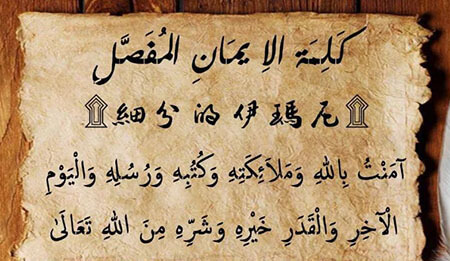 كَلِمَة الإِيمَانِ المُفَصَّلِ
۩細分的伊瑪尼۩
آمَنْتُ بِاللهِ وَمَلَائِكَتِهِ وَكُتُبِهِ وَرُسُلِهِ وَالْيَوْمِ
الْآخِرِ وَالْقَدَرِ خَيْرِهِ وَشَرِّهِ مِنَ اللهِ تَعَالَىٰ